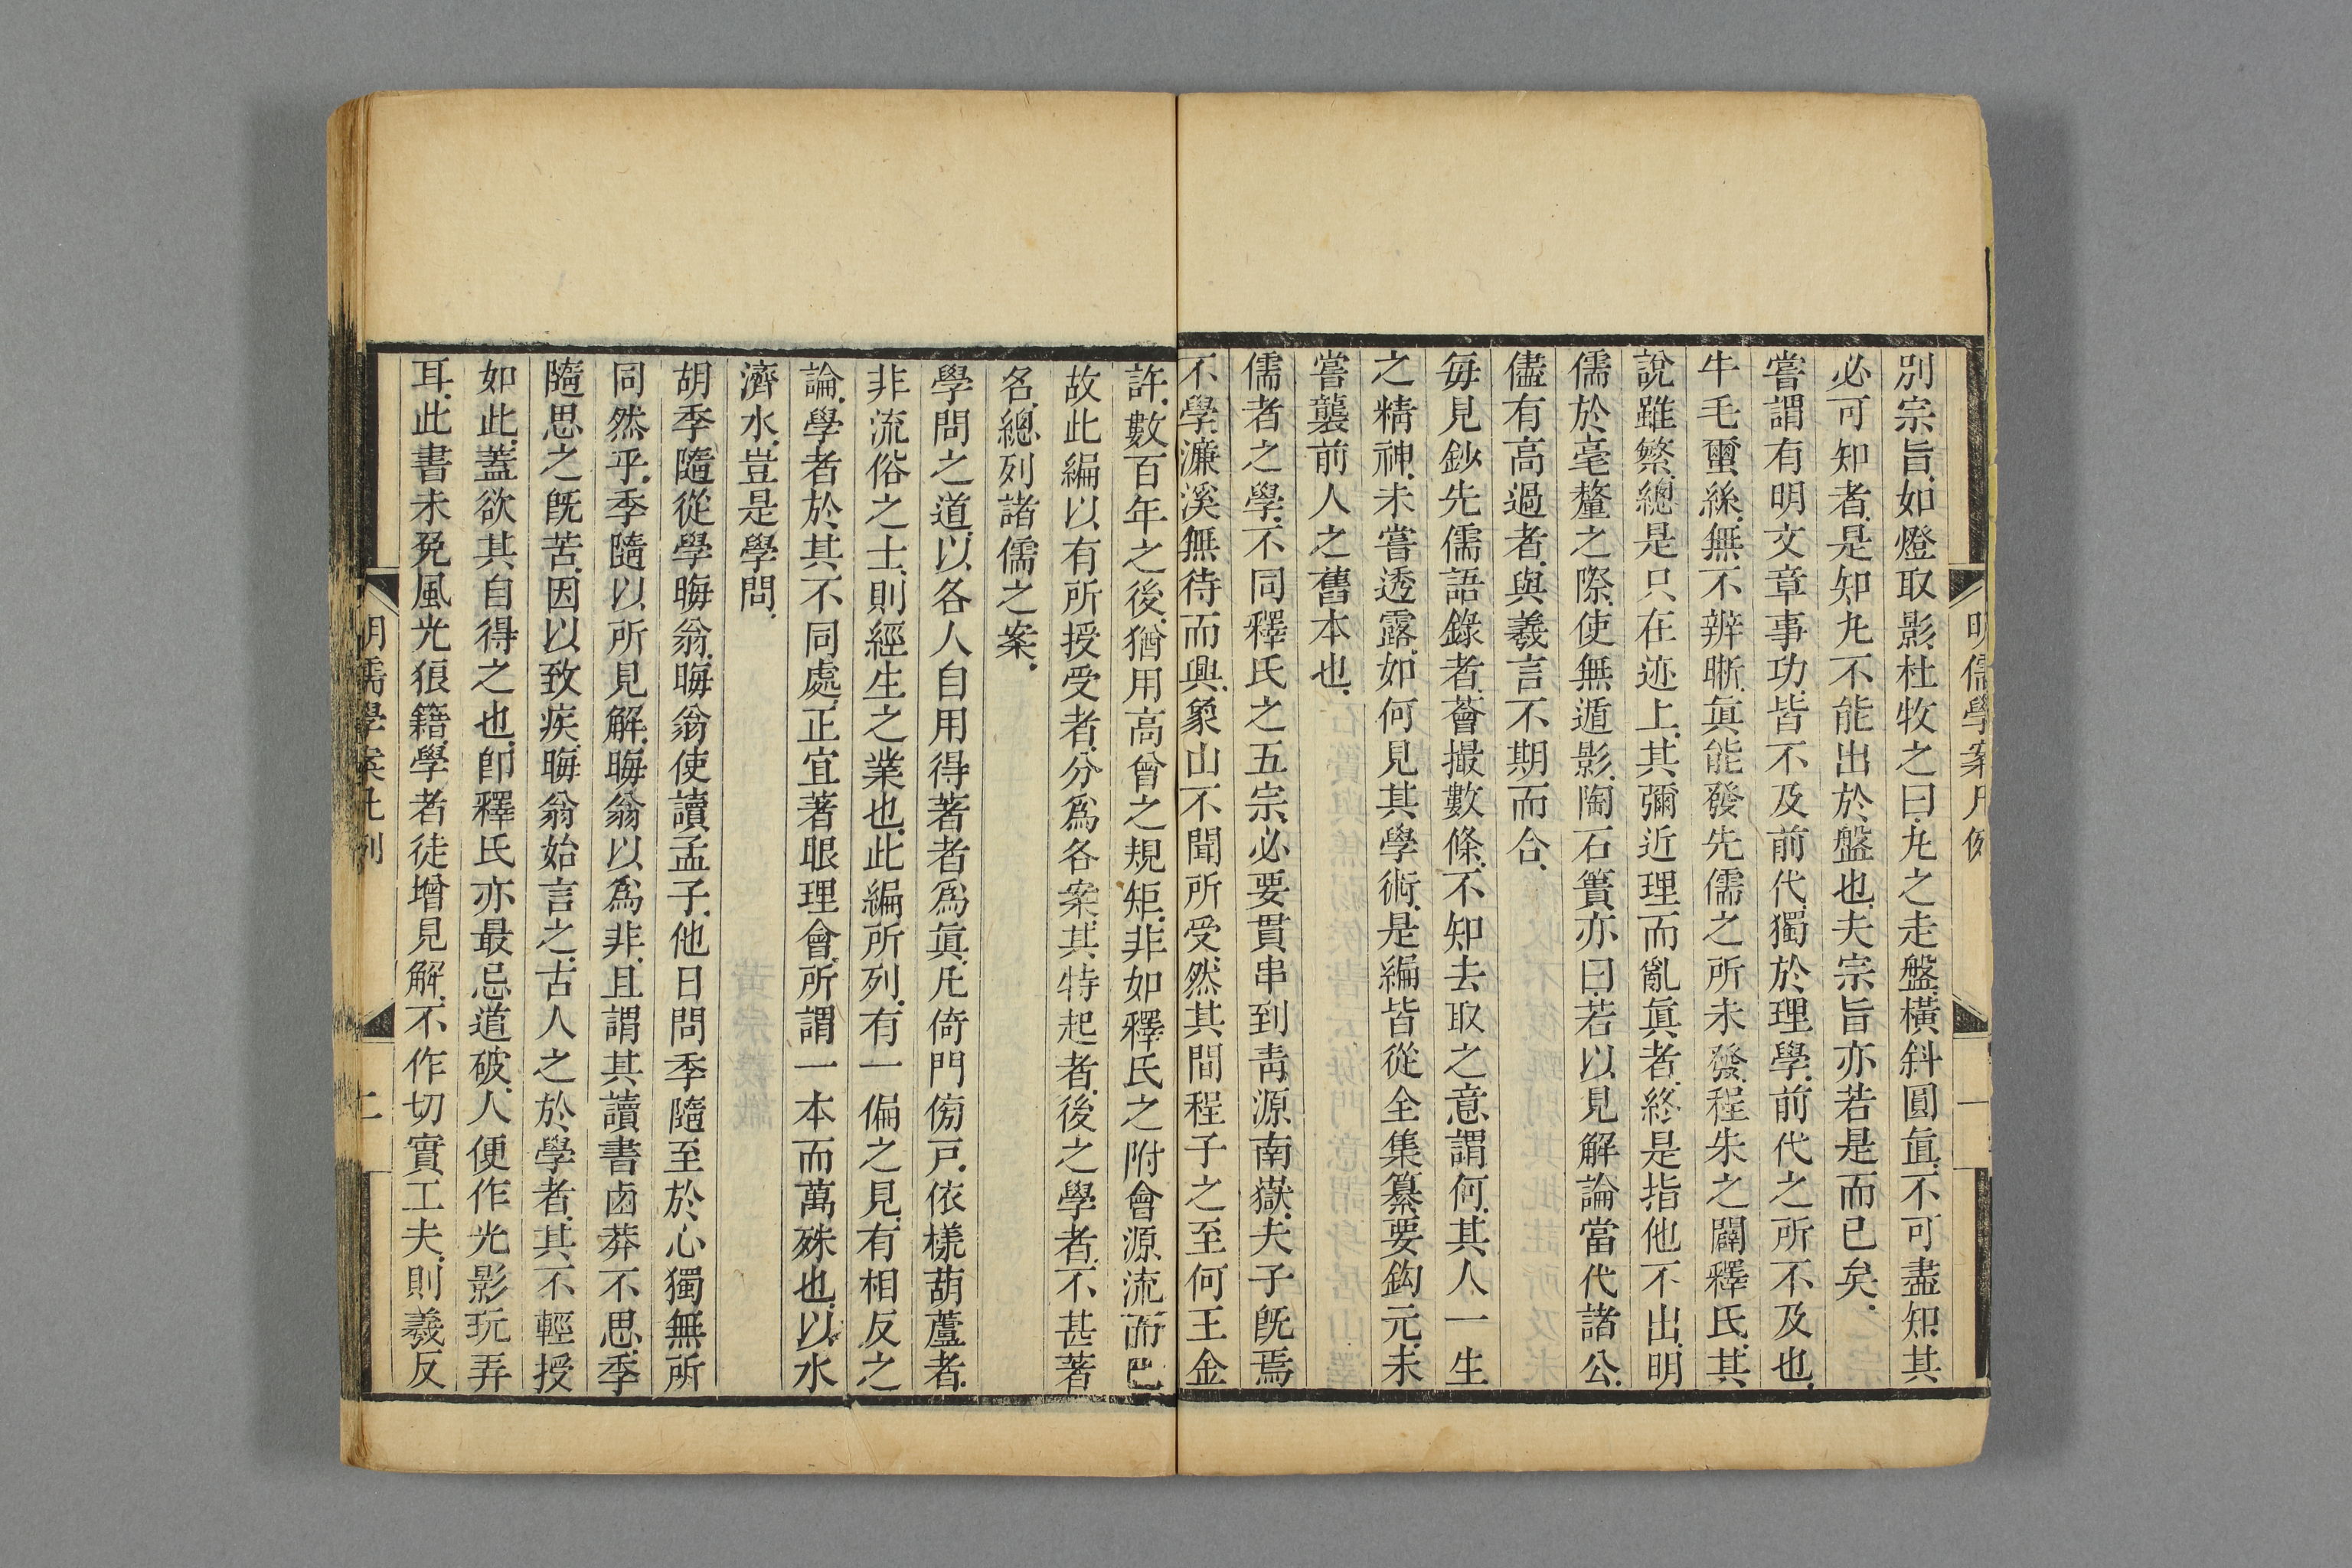 別宗旨如燈取影杜牧之曰丸之走盤橫斜圓直不可盡知其
必可知者是知丸不能出於盤也夫宗旨亦若是而已矣
嘗謂有明文章事功皆不及前代獨於理學前代之所不及也
牛毛蠒絲無不辨晰眞能發先儒之所未發程朱之闢釋氏其
說雖繁總是只在迹上其彌近理而亂眞者終是指他不出明
儒於毫釐之際使無遁影陶石簣亦曰若以見解論當代諸公
儘有高過者與羲言不期而合
每見鈔先儒語錄者薈撮數條不知去取之意謂何其人一生
之精神未嘗透露如何見其學術是編皆從全集纂要鈎元未
嘗襲前人之舊本也
儒者之學不同釋氏之五宗必要貫串到青源南嶽夫子旣焉
不學濂溪無待而興象山不聞所受然其間程子之至何王金
許數百年之後猶用高曾之規矩非如釋氏之附會源流而已
故此編以有所授受者分爲各案其特起者後之學者不甚著
名總列諸儒之案
學問之道以各人自用得著者爲眞凡倚門傍戸依樣葫蘆者
非流俗之士則經生之業也此編所列有一偏之見有相反之
論學者於其不同處正宜著眼理會所謂一本而萬殊也以水
濟水豈是學問
胡季隨從學晦翁晦翁使讀孟子他日問季隨至於心獨無所
同然乎季隨以所見解晦翁以爲非且謂其讀書鹵莽不思季
隨思之旣苦因以致疾晦翁始言之古人之於學者其不輕授
如此蓋欲其自得之也卽釋氏亦最忌道破人便作光影玩弄
耳此書未免風光狼籍學者徒增見解不作切實工夫則羲反
明儒學案凡例
一
明儒學案凡例
二